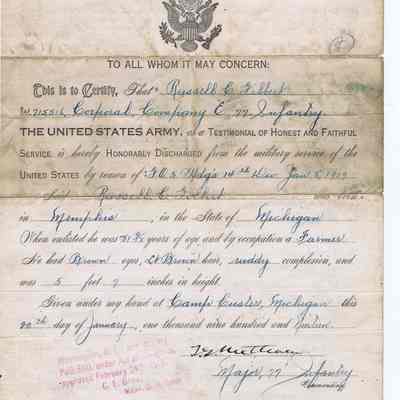 TO ALL WHOM IT MAY CONCERN:
This is to Certify, That Russell C.
Corporal, Company E, 77 Infantry
THE UNITED STATES ARMY, as a TESTIMONIAL OF HONEST AND FAITHFUL
SERVICE is hereby HONORABLY DISCHARGED from the military service of the
UNITED STATES by reason of Hdq's 14th Div. Jan.
Said Russell C.
in Memphis, in the State of Michigan
When enlisted he was years of age and by occupation a Farmer
He had Brown eyes, Lt Brown hair, ruddy complexion, and
was 5 feet 7 inches in height.
Given under my hand at Camp Custer, Michigan this
22th day of January, one thousand nine hundred and
Major, 77 Infantry
Commanding